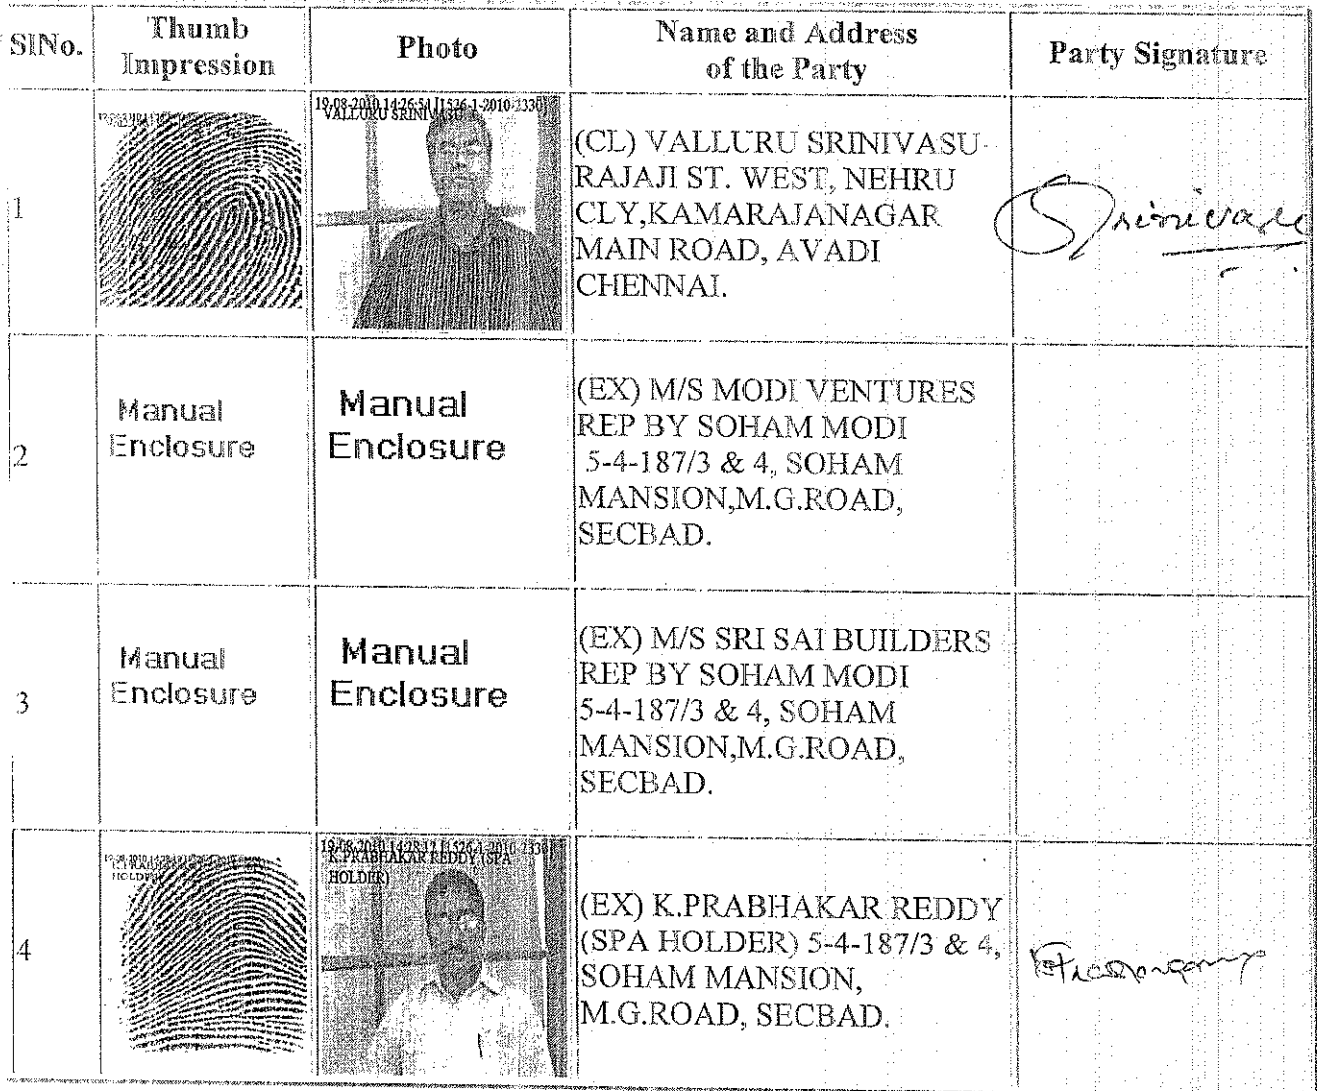 SlNo.
Thumb
Impression
Photo
Name and Address
of the Party
Party Signature
1
19-08-2010 14:26:54 [1526-1-2010-2330]
VALLURU SRINIVASU
(CL) VALLURU SRINIVASU
RAJAJI ST. WEST, NEHRU
CLY,KAMARAJANAGAR
MAIN ROAD, AVADI
CHENNAI.
Srinivasu
2
Manual
Enclosure
Manual
Enclosure
(EX) M/S MODI VENTURES
REP BY SOHAM MODI
5-4-187/3 & 4, SOHAM
MANSION,M.G.ROAD,
SECBAD.
3
Manual
Enclosure
Manual
Enclosure
(EX) M/S SRI SAI BUILDERS
REP BY SOHAM MODI
5-4-187/3 & 4, SOHAM
MANSION,M.G.ROAD,
SECBAD.
4
HOLDER)
K.PRABHAKAR REDDY (SPA
HOLDER)
(EX) K.PRABHAKAR REDDY
(SPA HOLDER) 5-4-187/3 & 4,
SOHAM MANSION,
M.G.ROAD, SECBAD.